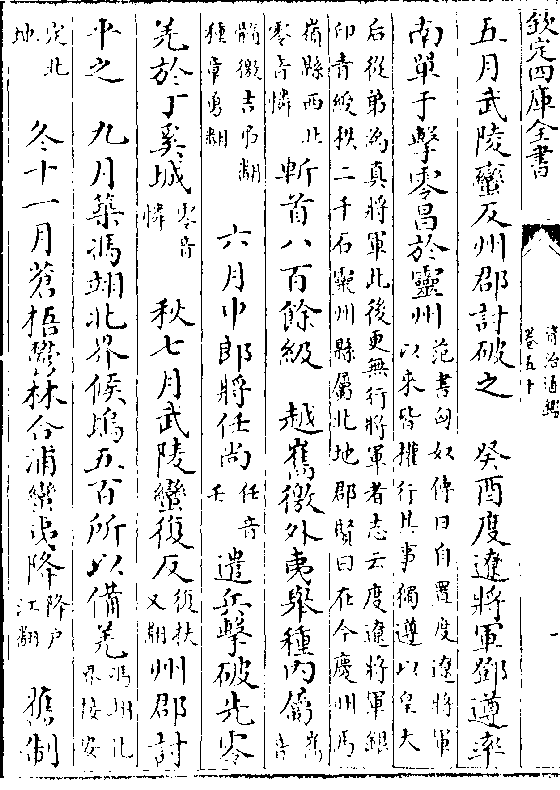 欽定四庫全書
資治通鑑
卷五十
五月武陵蠻反州郡討破之 癸酉度遼將軍鄧遵率
南單于擊零昌於靈州 范書匈奴傳曰自置度遼將軍
以來皆權行其事獨遵以皇太
后從弟為真將軍此後更無行將軍者志云度遼將軍銀
印青綬秩二千石靈州縣屬北地郡賢曰在今慶州馬
嶺縣西北
零音憐 斬首八百餘級 越嶲徼外夷舉種內屬 嶲音
髓徼吉弔翻
種章勇翻 六月中郎將任尚 任音
壬 遣兵擊破先零
羌於丁奚城 零音
憐 秋七月武陵蠻復反 復扶
又翻 州郡討
平之 九月築馮翊北界候塢五百所以備羌 馮翊北
界接安
定北
地 冬十一月蒼梧鬱林合浦蠻夷降 降户
江翻 舊制